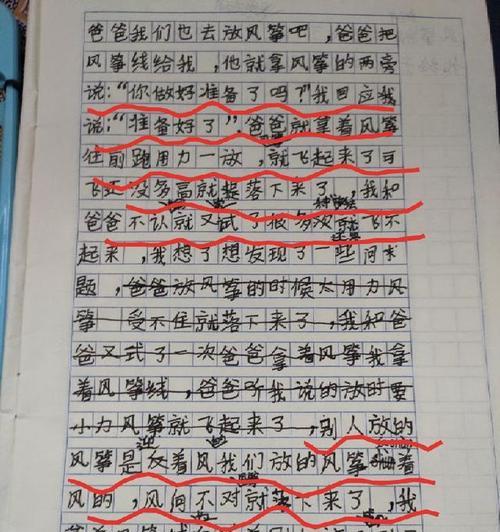 爸爸我们也去放风筝吧，爸爸把
风筝线给我，他就拿风筝的两旁
说：“你做好准备了吗？”我回应我
说：“准备好了”.爸爸就拿着风筝
往前跑用力一放，就飞起来了可
飞还没多高就落下来了，我和
爸爸不认就又试了很多次就飞不
起来，我想了想发现了一些问
题，爸爸放风筝的时候太用力风
筝 受不住就落下来了，我和爸
爸又式了一次爸爸拿着风筝我拿
着风筝线，爸爸听我说的放时要
小力风筝就飞起来了，别人放的
风筝是反着风我们放的风筝着
风的，风向不对就下来了，我